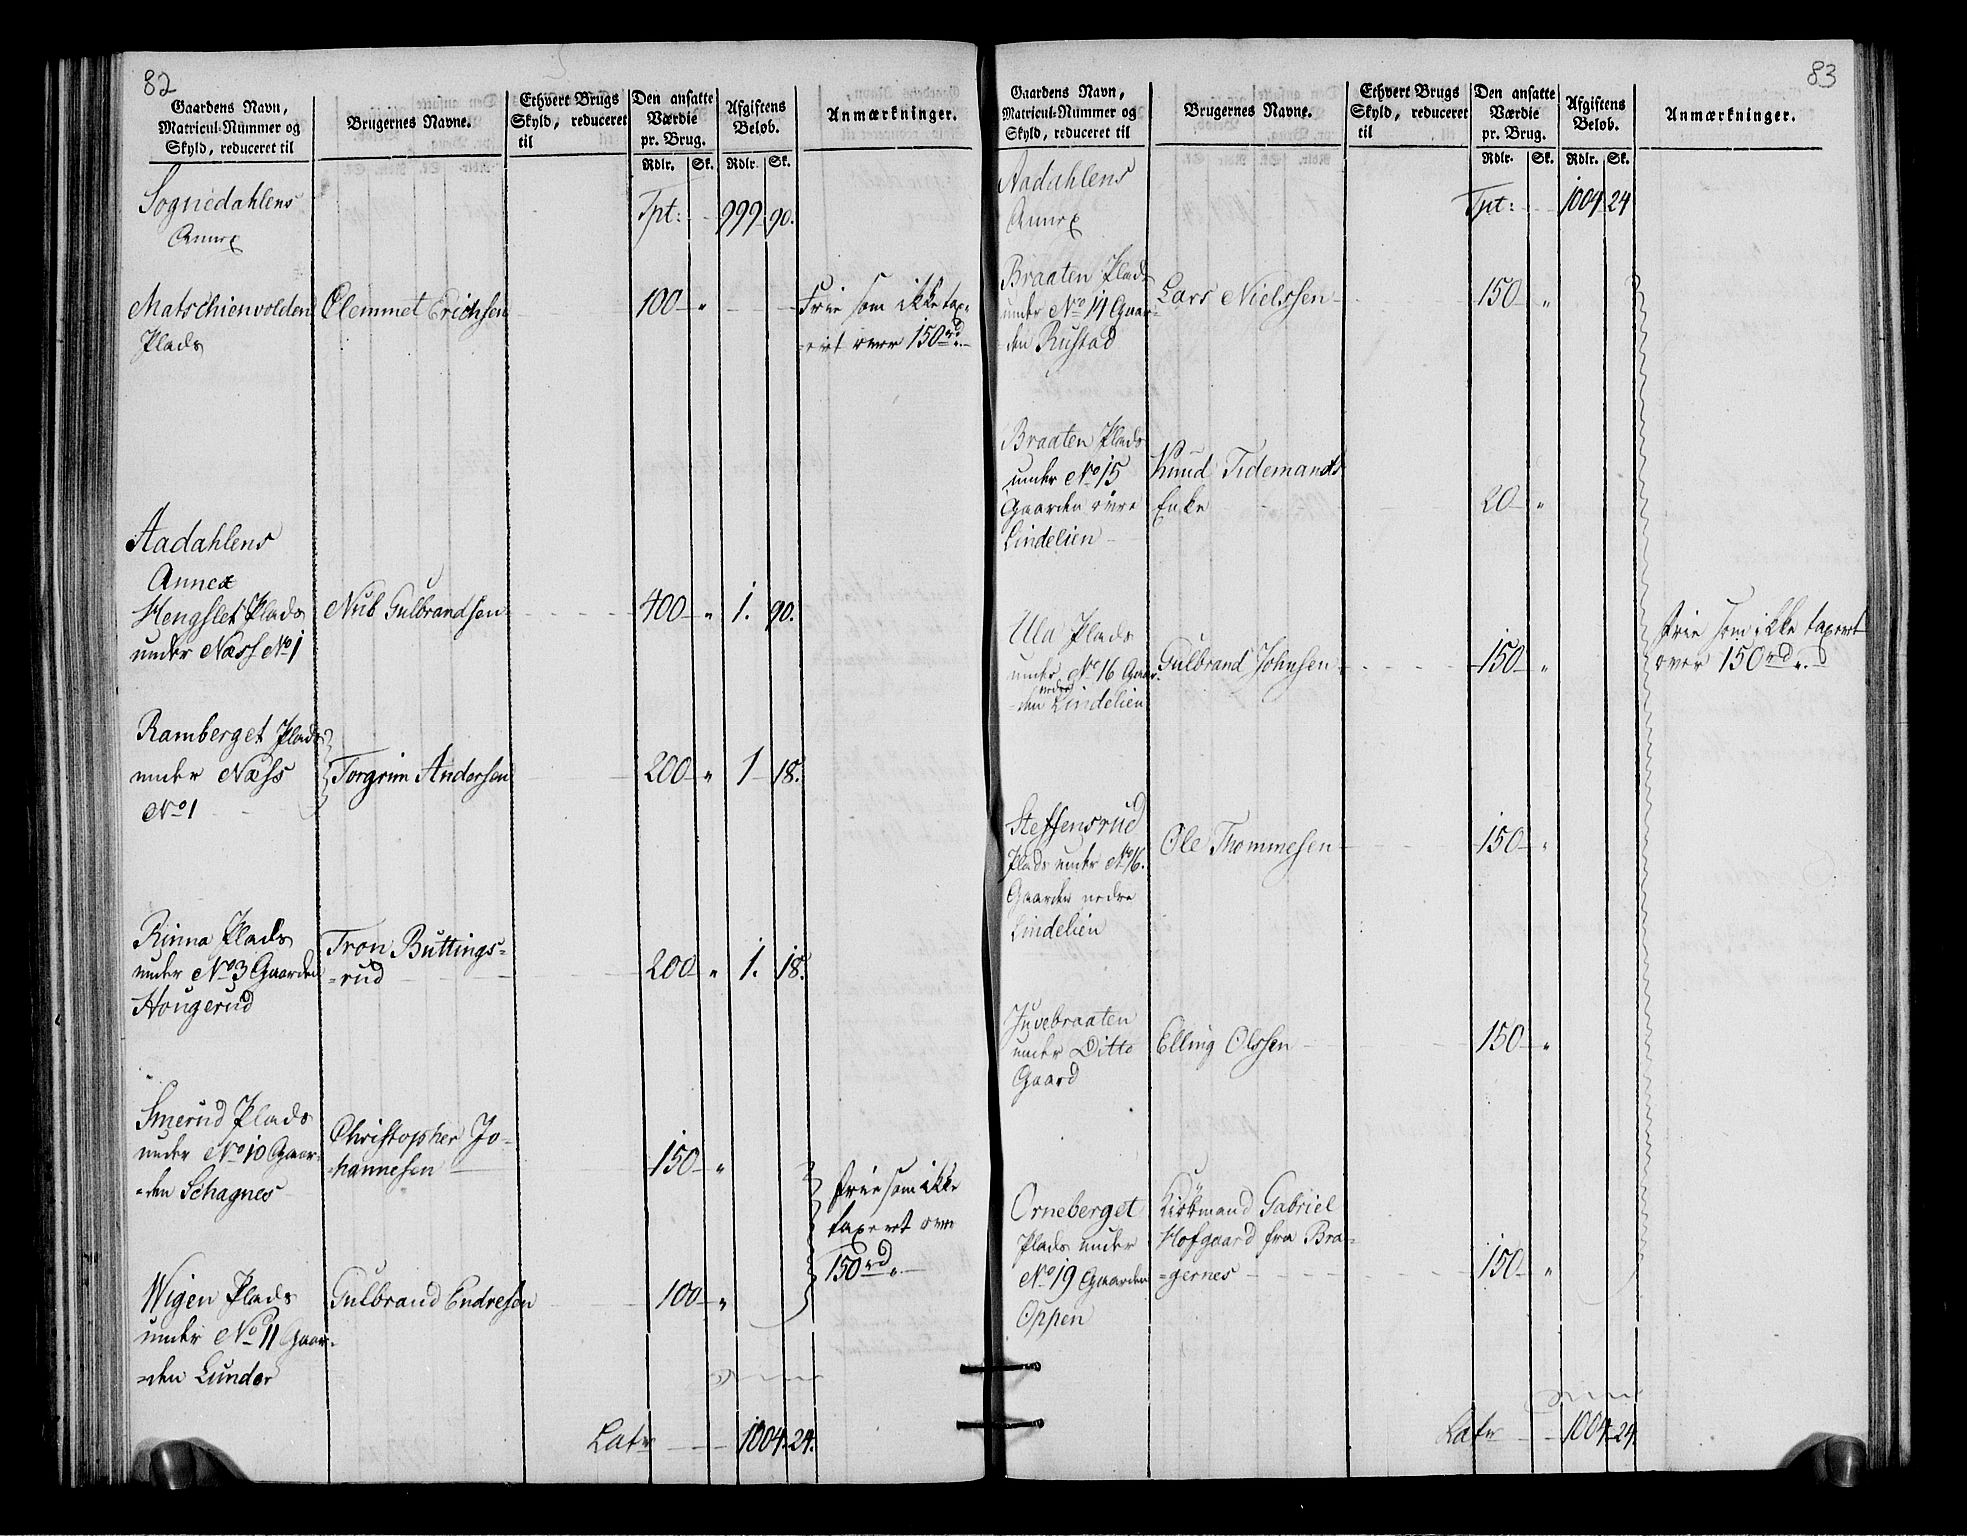 82
Gaardens Navn,
Matricul-Nummer og
Skyld, reduceret til
Brugernes Navne.
Ethvert Brugs
Skyld, reduceret
til
Den ansatte
Værdie
pr. Brug.
Rdlr. Sk.
Afgiftens
Beløb.
Rdlr. Sk.
Anmærkninger.
Sognedahlens Tpt: 999 90.
Annex
Matschienvolden Clemmet Erichsen 100 " Frie som ikke taxe-
Plads =ret over 150 rd.
Aadahlens
Annex
Hengslet Plads Nub Gulbrandsen 400 " 1. 90.
under Næss No 1
Ramberget Plads
under Næss Torgrim Andersen 200 " 1 18.
No 1
Rinna Plads Tron Buttings=
under No 3 Gaarden =rud 200 " 1. 18.
Hougerud
Smerud Plads Christopher Jo-
under No 10 Gaar- =hannesen 150 "
=den Schagnes frie som ikke
taxeret over
150 rd.
Wigen Plads Gulbrand Endresen 100 "
under No 11 Gaar-
=den Lunder
Latr 1004. 24.
83
Gaardens Navn,
Matricul-Nummer og
Skyld, reduceret til
Brugernes Navne.
Ethvert Brugs
Skyld, reduceret
til
Den ansatte
Værdie
pr. Brug.
Rdlr. Sk.
Afgiftens
Beløb.
Rdlr. Sk.
Anmærkninger.
Aadahlens Tpt: 1004 24
Annex
Braaten Plads
under No 14 Gaar- Lars Nielssen 150 "
den Rustad
Braaten Plads
under No 15 Knud Tidemands
Gaarden øvre Enke 20 "
Lindelien
Ula Plads frie som ikke taxert
under No 16 Gaar- Gulbrand Johnsen 150 " over 150 rd.
=den nedre Lindelien
Steffensrud Ole Thommesen 150 "
Plads under No 16.
Gaarden nedre
Lindelien
Juvebraaten
under Ditto Elling Olssen 150 "
Gaard
Orneberget Kiøbmand Gabriel
Plads under Hofgaard fra Bra=
No 19 Gaarden =gernes 150 "
Oppen
Latr 1004. 24.